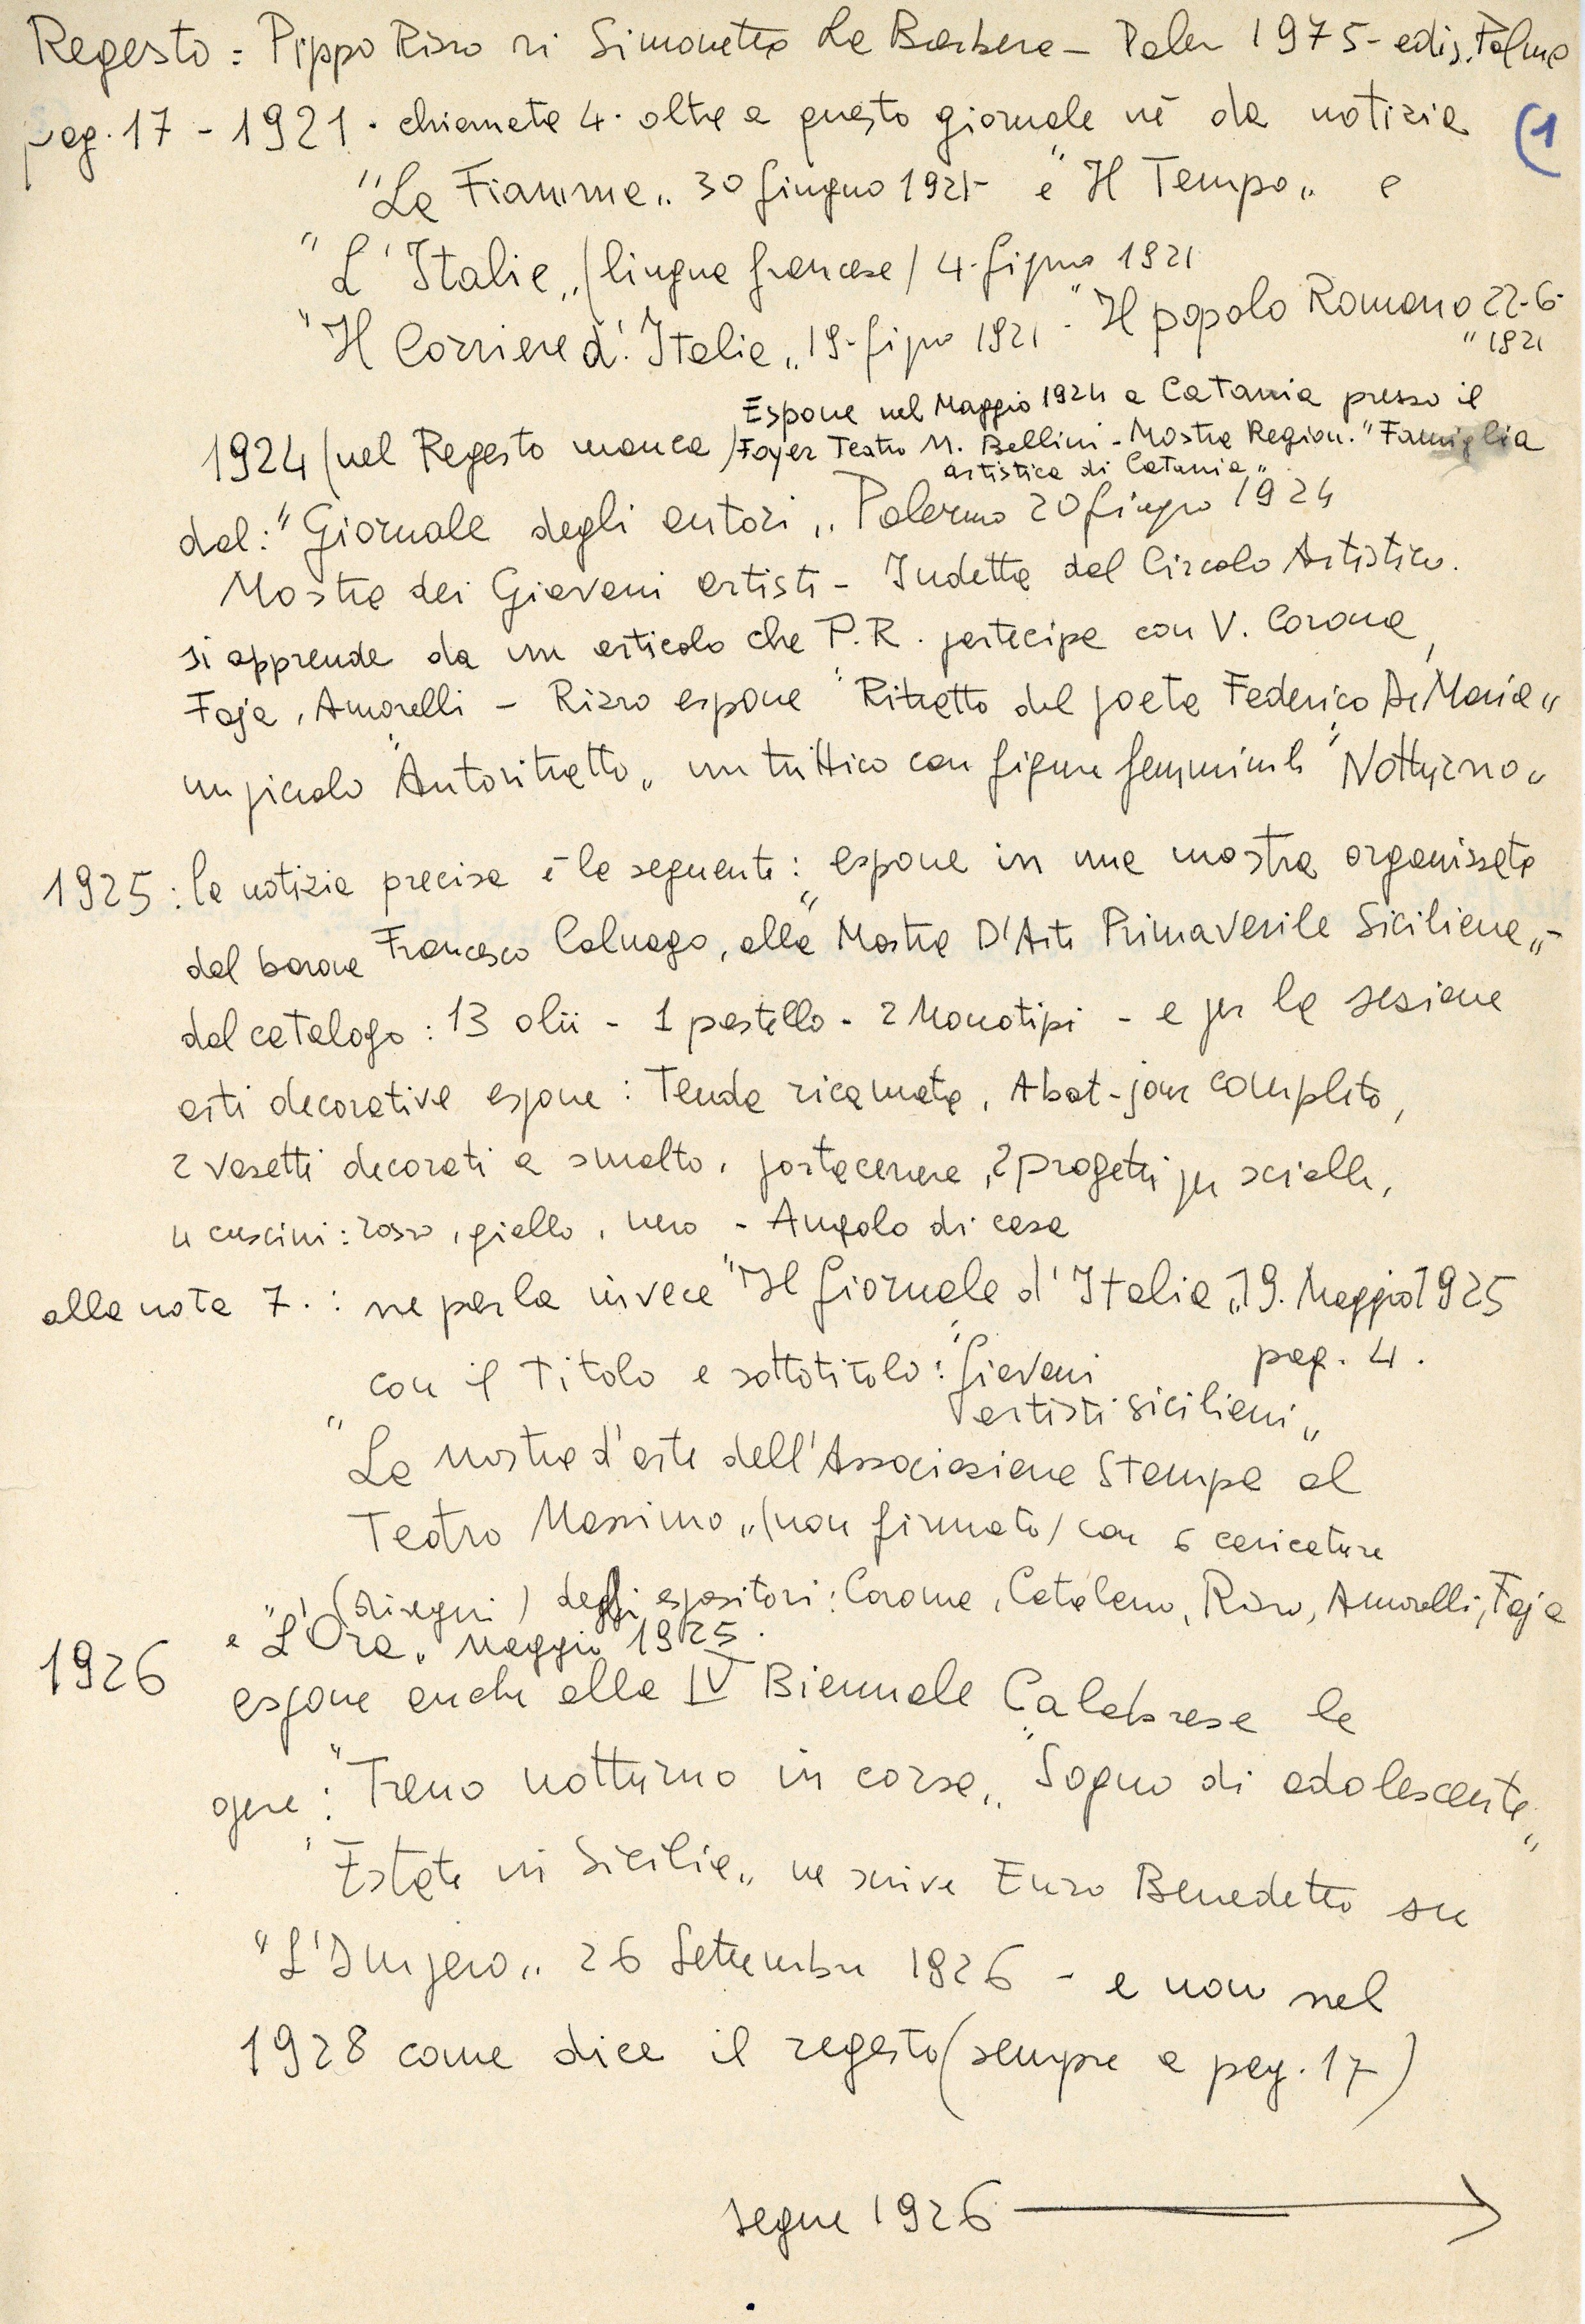 Regesto = Pippo Rizzo di Simonetta La Barbera - Paler 1975 - ediz. Palma
pag. 17 - 1921 . chiamata 4. oltre a questo giornale né da notizia (1
"La Fiamma" 30 Giugno 1921 - e "Il Tempo" e
"L'Italie" (lingua francese) 4. Giugno 1921
"Il Corriere d'Italia" 19. Giugno 1921 - "Il popolo Romano 22-6-
" 1921
Espone nel Maggio 1924 a Catania presso il
1924 (nel Regesto manca) Foyer Teatro M. Bellini - Mostra Region. "Famiglia
artistica di Catania"
dal: "Giornale degli autori" Palermo 20 Giugno 1924
Mostra dei Giovani artisti - Indetta dal Circolo Artistico.
si apprende da un articolo che P.R. partecipa con V. Corona,
Faja, Amorelli - Rizzo espone "Ritratto del poeta Federico De Maria"
un piccolo "Autoritratto" un trittico con figure femminili "Notturno"
1925: la notizia precisa è la seguente: espone in una mostra organizzata
dal barone Francesco Calnago, alla "Mostra D'Arte Primaverile Siciliana" -
dal catalogo: 13 olii - 1 pastello - 2 Monotipi - e per la sezione
arti decorative espone: Tenda ricamata, Abat-jour completo,
2 vasetti decorati a smalto, portacenere, 2 progetti per scialli,
4 cuscini: rosso, giallo, nero - Angolo di casa
alla nota 7.: ne parla invece "Il Giornale d'Italia" 19. Maggio 1925
pag. 4.
con il Titolo e sottotitolo: "Giovani
artisti siciliani"
"La mostra d'arte dell'Associazione Stampa al
Teatro Massimo" (non firmato) con 6 caricature
(disegni) degli espositori: Corona, Catalano, Rizzo, Amorelli, Faja
e "L'Ora" Maggio 1925.
1926 espone anche alla IV Biennale Calabrese le
opere: "Treno notturno in corsa" "Sogno di adolescente"
"Estate in Sicilia" ne scrive Enzo Benedetto su
"L'Impero" 26 Settembre 1926 - e non nel
1928 come dice il regesto (sempre a pag. 17)
segue 1926 →